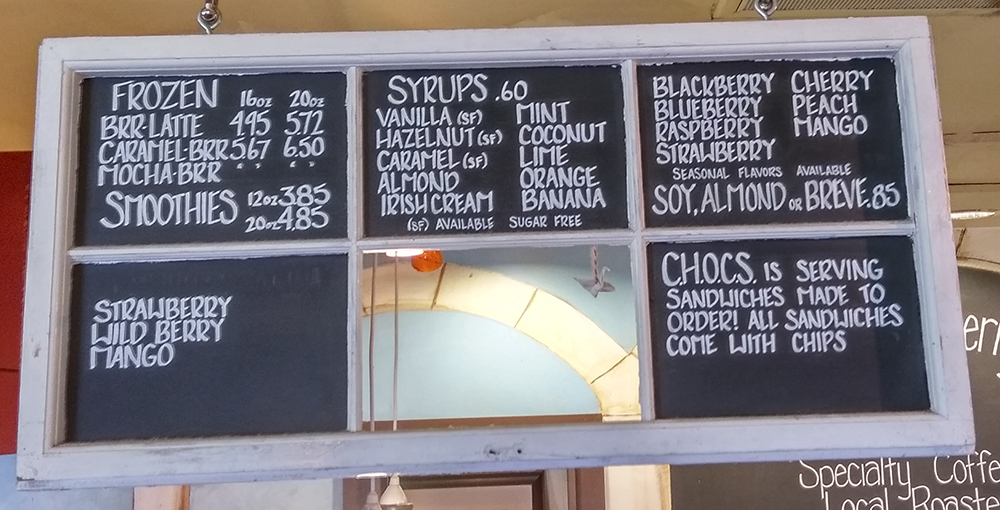 FROZEN 16oz 20oz
BRR-LATTE 4.95 5.72
CARAMEL-BRR 5.67 6.50
MOCHA-BRR " "
SMOOTHIES 12oz 3.85
20oz 4.85
SYRUPS .60
VANILLA (SF) MINT
HAZELNUT (SF) COCONUT
CARAMEL (SF) LIME
ALMOND ORANGE
IRISH CREAM BANANA
(SF) AVAILABLE SUGAR FREE
BLACKBERRY CHERRY
BLUEBERRY PEACH
RASPBERRY MANGO
STRAWBERRY
SEASONAL FLAVORS AVAILABLE
SOY, ALMOND OR BREVE .85
STRAWBERRY
WILD BERRY
MANGO
C.H.O.C.S. IS SERVING
SANDWICHES MADE TO
ORDER! ALL SANDWICHES
COME WITH CHIPS
Specialty Coffe
Local Roaste